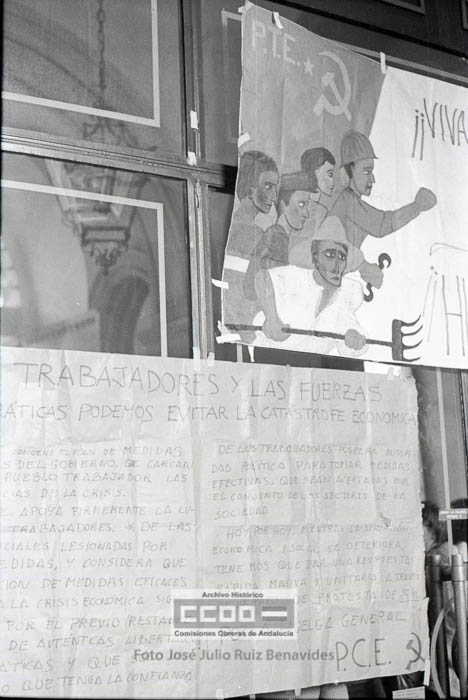 P.T.E.
¡¡VIVA
¡H
TRABAJADORES Y LAS FUERZAS
ÁTICAS PODEMOS EVITAR LA CATÁSTROFE ECONOMICA
CONDENA PLAN DE MEDIDAS
S DEL GOBIERNO, SE CARGAN
PUEBLO TRABAJADOR LAS
CIAS DE LA CRISIS.
E. APOYA FIRMEMENTE LA LU-
TRABAJADORES, Y DE LAS
CIALES LESIONADAS POR
EDIDAS, Y CONSIDERA QUE
CION DE MEDIDAS EFICACES
A LA CRISIS ECONÓMICA
POR EL PREVIO
DE AUTENTICAS
ÁTICAS Y QUE
O QUE TENGA LA CONFIANZA
DE LAS TRABAJADORES
DAD POLÍTICA PARA TOMAR MEDIDAS
EFECTIVAS, QUE SEAN ACEPTADAS POR
EL CONJUNTO DE LOS SECTORES DE LA
SOCIEDAD
HOY POR HOY, MIENTRAS LA
ECONOMICA Y SOCIAL SE DETERIORA,
TENEMOS QUE DAR UNA RESPUESTA
RÁPIDA MASIVA Y UNITARIA A TRAVÉS
DE PROTESTA DE
HUELGA GENERAL
P.C.E.
Archivo Histórico
CCOO
Comisiones Obreras de Andalucía
Foto José Julio Ruiz Benavides